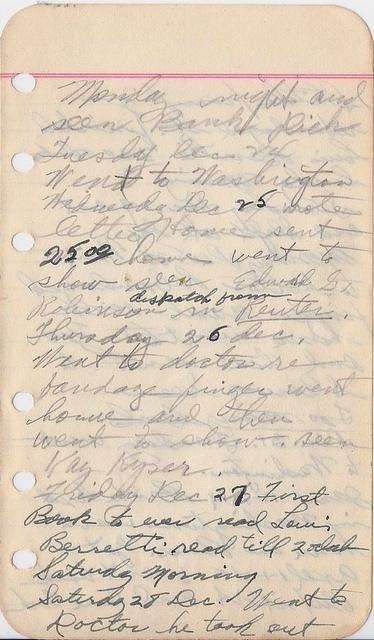 Monday night and
seen Bank Dick
Tuesday Dec 24
Went to Washington
Wednesday Dec 25 wrote
letter Home sent
25.00 home went to
show seen Edward G.
Robinson in dispatch from Reuter.
Thursday 26 Dec.
Went to doctor re
bandage finger went
home and then
went to show. seen
Kay Kyser.
Friday Dec 27 First
Book to ever read Louis
Beretti read till 2 oclock
Saturday Morning
Saturday 28 Dec. Went to
Doctor he took out